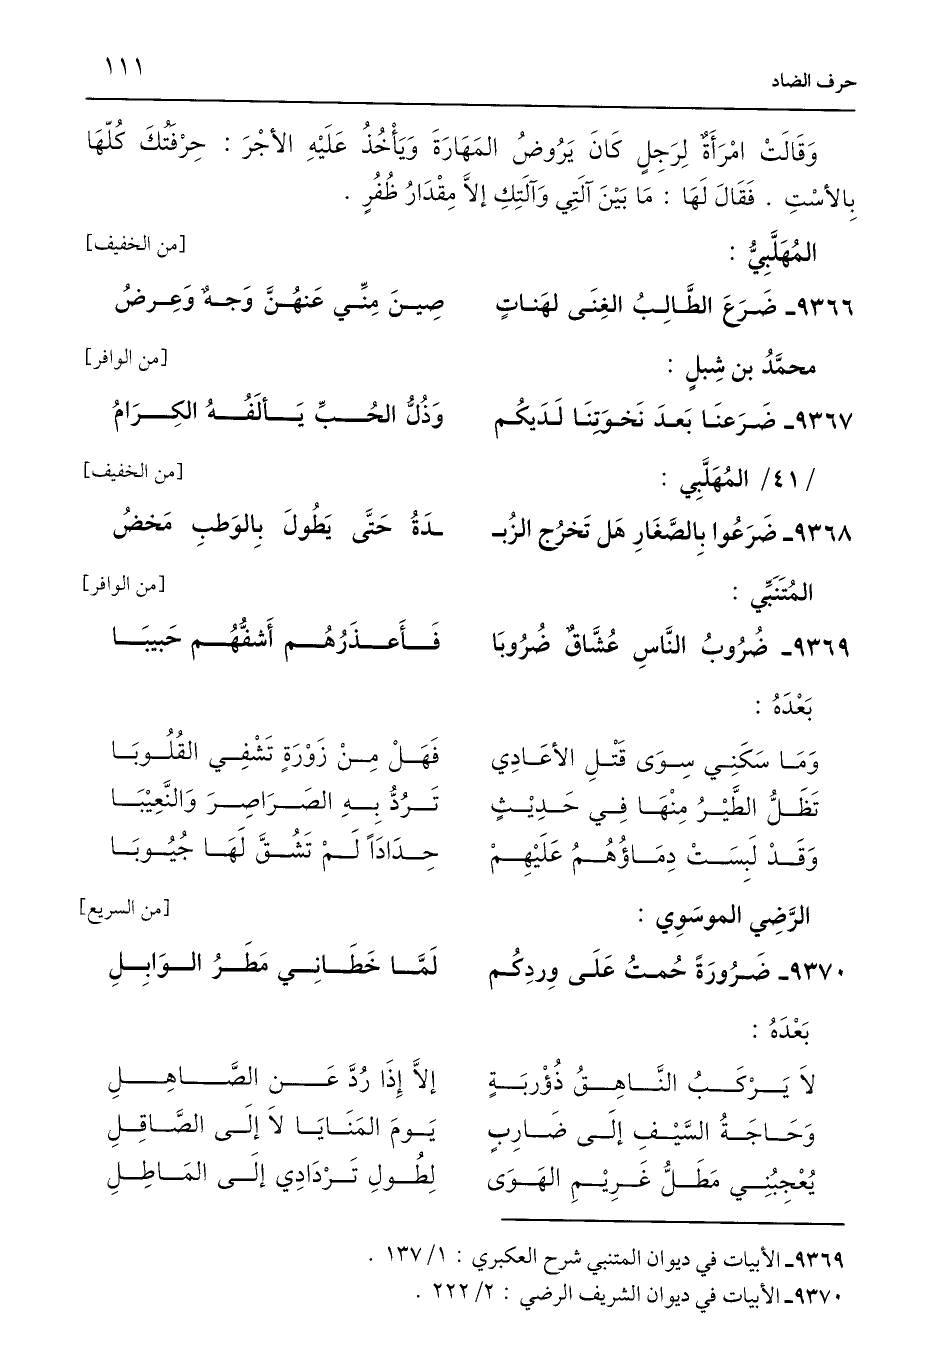 حرف الضاد ١١١
وَقَالَتْ امْرَأَةٌ لِرَجلٍ كَانَ يَرُوضُ المَهَارَةَ وَيَأْخُذُ عَلَيْهِ الأجْرَ : حِرْفَتُكَ كُلّهَا
بِالأسْتِ . فَقَالَ لَهَا : مَا بَيْنَ آلَتِي وَآلَتِكِ إلاَّ مِقْدَارُ ظُفُرٍ .
المُهَلَّبِيُّ : [من الخفيف]
٩٣٦٦ـ ضَرَعَ الطَّالِبُ الغِنَى لهَناتٍ صِينَ مِنِّي عَنهُنَّ وَجهٌ وَعِرضُ
محمَّدُ بن شِبلٍ : [من الوافر]
٩٣٦٧ـ ضَرَعنَا بَعدَ نَخوَتِنَا لَدَيكُم وَذُلُّ الحُبِّ يَألَفُهُ الكِرَامُ
/٤١/ المُهَلَّبِي : [من الخفيف]
٩٣٦٨ـ ضَرَعُوا بِالصَّغَارِ هَل تَخرُج الزُبـ ـدَةُ حَتَّى يَطُولَ بِالوَطبِ مَخضُ
المُتَنَبِّي : [من الوافر]
٩٣٦٩ـ ضُرُوبُ النَّاسِ عُشَّاقٌ ضُرُوبَا فَأَعذَرُهُم أَشفُّهُم حَبيبَا
بَعْدَهُ :
وَمَا سَكَنِي سِوَى قَتْلِ الأعَادِي فَهَلْ مِنْ زَوْرَةٍ تَشْفِي القُلُوبَا
تَظَلُّ الطَّيْرُ مِنْهَا فِي حَدِيْثٍ تَرُدُّ بِهِ الصَرَاصِرَ وَالنَّعِيْبَا
وَقَدْ لَبِسَتْ دِمَاؤُهُمُ عَلَيْهِمْ حِدَادَاً لَمْ تَشُقَّ لَهَا جُيُوبَا
الرَّضِي الموسَوِي : [من السريع]
٩٣٧٠ـ ضَرُورَةً حُمتُ عَلَى وِردِكُم لَمَّا خَطَانِي مَطَرُ الوَابِلِ
بَعْدَهُ :
لاَ يَرْكَبُ النَّاهِقُ ذُؤْرِبَةٍ إلاَّ إذَا رُدَّ عَنِ الصَّاهِلِ
وَحَاجَةُ السَّيْفِ إلَى ضَارِبٍ يَومَ المَنَايَا لاَ إلَى الصَّاقِلِ
يُعْجِبُنِي مَطَلُ غَرِيْمِ الهَوَى لِطُولِ تَرْدَادِي إلَى المَاطِلِ
٩٣٦٩ـ الأبيات في ديوان المتنبي شرح العكبري : ١/ ١٣٧ .
٩٣٧٠ـ الأبيات في ديوان الشريف الرضي : ٢/ ٢٢٢ .